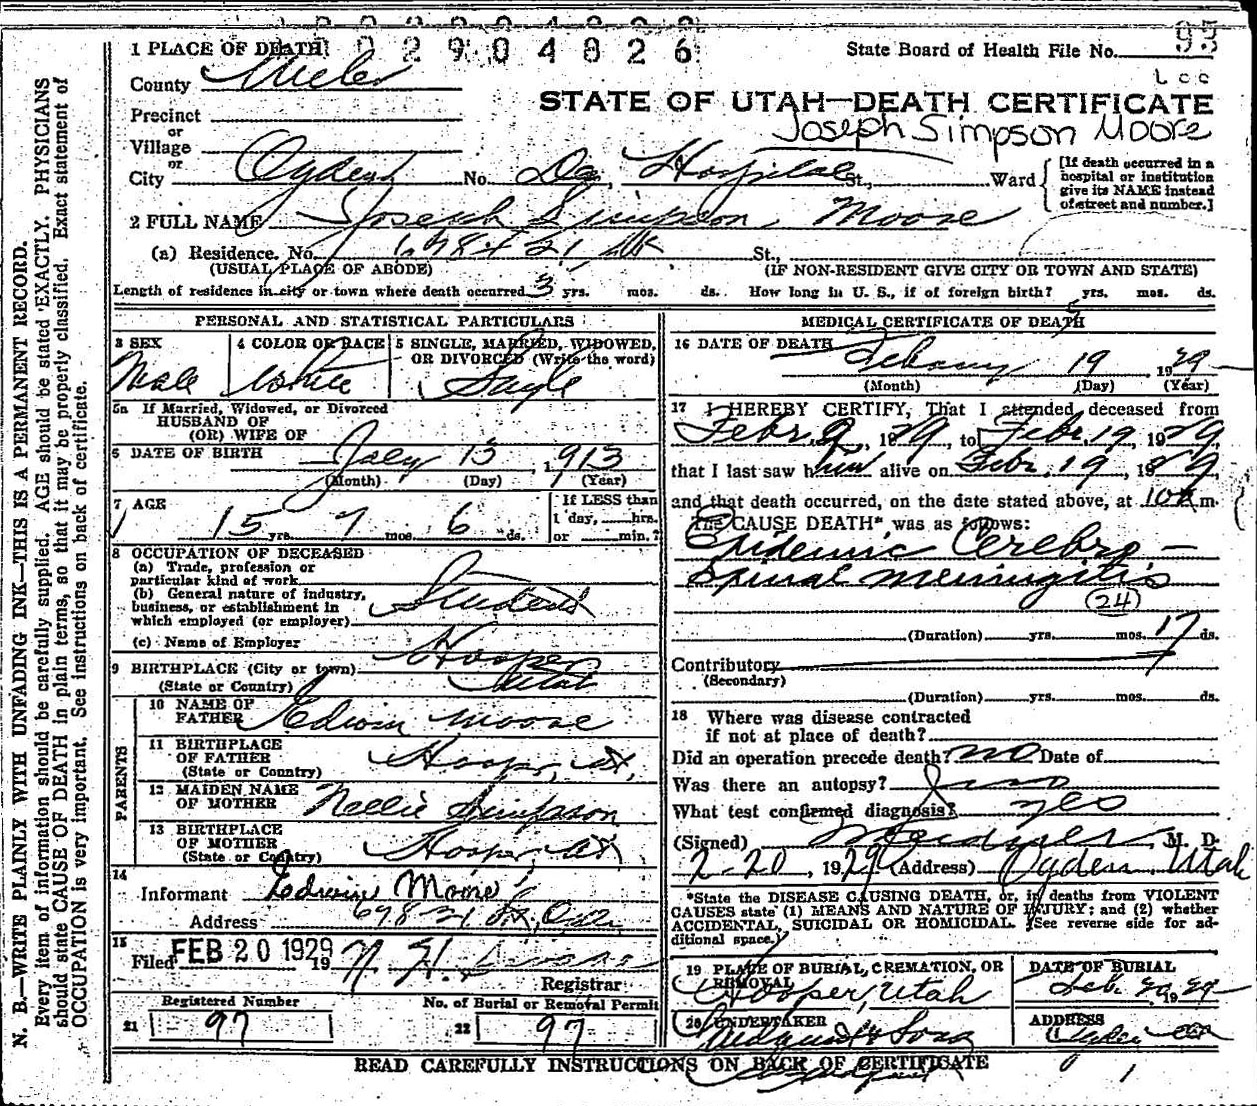 0 0 2 9 0 4 8 2 6
1 PLACE OF DEATH State Board of Health File No. 95
County Weber
Precinct
or
Village
or
City Ogden No. Dee Hospital St., Ward
[If death occurred in a hospital or institution give its NAME instead of street and number.]
STATE OF UTAH—DEATH CERTIFICATE
Joseph Simpson Moore
2 FULL NAME Joseph Simpson Moore
(a) Residence. No. 698 - 21 St.,
(USUAL PLACE OF ABODE) (IF NON-RESIDENT GIVE CITY OR TOWN AND STATE)
Length of residence in city or town where death occurred 3 yrs. mos. ds. How long in U. S., if of foreign birth? yrs. mos. ds.
PERSONAL AND STATISTICAL PARTICULARS
3 SEX
Male
4 COLOR OR RACE
White
5 SINGLE, MARRIED, WIDOWED, OR DIVORCED (Write the word)
Single
5a If Married, Widowed, or Divorced
HUSBAND OF
(OR) WIFE OF
6 DATE OF BIRTH July 13, 1913
(Month) (Day) (Year)
7 AGE
15 yrs. 7 mos. 6 ds.
If LESS than
1 day, hrs.
or min.?
8 OCCUPATION OF DECEASED
(a) Trade, profession or
particular kind of work
(b) General nature of industry,
business, or establishment in
which employed (or employer)
Student
(c) Name of Employer
9 BIRTHPLACE (City or town) Hooper
(State or Country) Utah
PARENTS
10 NAME OF
FATHER Edwin Moore
11 BIRTHPLACE
OF FATHER Hooper, Ut.
(State or Country)
12 MAIDEN NAME
OF MOTHER Nellie Simpson
13 BIRTHPLACE
OF MOTHER Hooper, Ut
(State or Country)
14
Informant Edwin Moore
Address 698 - 21 St, Ogden
15
Filed FEB 20 1929 19
Registrar
Registered Number
21 97
No. of Burial or Removal Permit
22 97
MEDICAL CERTIFICATE OF DEATH
16 DATE OF DEATH
February 19, 1929
(Month) (Day) (Year)
17 I HEREBY CERTIFY, That I attended deceased from
Febr. 2, 1929, to Febr. 19, 1929,
that I last saw him alive on Febr. 19, 1929,
and that death occurred, on the date stated above, at 10 m.
The CAUSE DEATH* was as follows:
Epidemic Cerebro-
spinal meningitis
(24)
(Duration) yrs. mos. 17 ds.
Contributory
(Secondary)
(Duration) yrs. mos. ds.
18 Where was disease contracted
if not at place of death?
Did an operation precede death? no Date of
Was there an autopsy? no
What test confirmed diagnosis? yes
(Signed) M. D.
2-20, 1929 (Address) Ogden Utah
*State the DISEASE CAUSING DEATH, or, in deaths from VIOLENT
CAUSES state (1) MEANS AND NATURE OF INJURY; and (2) whether
ACCIDENTAL, SUICIDAL OR HOMICIDAL. (See reverse side for ad-
ditional space.)
19 PLACE OF BURIAL, CREMATION, OR
REMOVAL
Hooper, Utah
DATE OF BURIAL
Feb. 20, 1929
20 UNDERTAKER
& Sons
ADDRESS
Ogden
READ CAREFULLY INSTRUCTIONS ON BACK OF CERTIFICATE
N. B.—WRITE PLAINLY WITH UNFADING INK—THIS IS A PERMANENT RECORD.
Every item of information should be carefully supplied. AGE should be stated EXACTLY. PHYSICIANS
should state CAUSE OF DEATH in plain terms, so that it may be properly classified. Exact statement of
OCCUPATION is very important. See instructions on back of certificate.